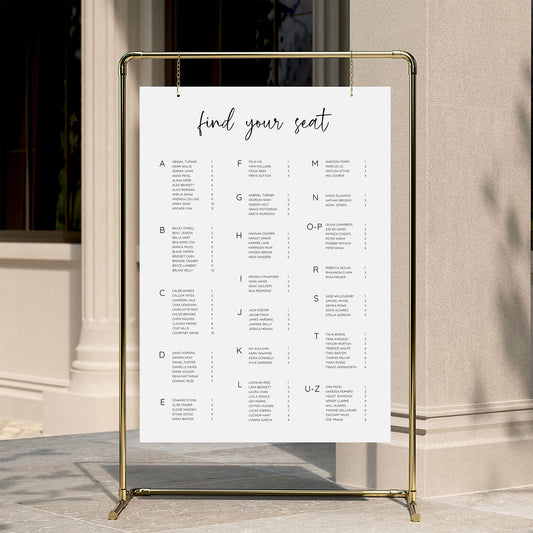 find your seat
A
ABIGAIL TURNER 1
ADAM WILLIS 2
ADRIAN LOWE 3
AISHA PATEL
ALANA KERR
ALEX BENNETT
ALICE MORGAN
AMELIA SHAW
ANDREW COLLINS
ANIKA SHAH
ARCHER FINN
B
BAILEY O'NEILL
BEAU JENSEN
BELLA HART
BENJAMIN COX
BIANCA MILES
BLAKE HARRIS
BRIDGET CHEN
BROOKE TANNER
BRYCE LAMBERT
BRUNO KELLY
C
CALEB MORRIS
CALLUM YATES
CAMERON VALE
CARA DONOVAN
CHARLOTTE RYE
CHLOE BROOKS
CHRIS NGUYEN
CLAUDIA MARSH
CODY ELLIS
COURTNEY HAYES
D
DAISY HOPKINS
DAMIEN KENT
DANIEL FOSTER
DANIELLE HAYES
DARIA WILSON
DEAN MATTHEWS
DOMINIC ROSE
E
EDWARD STONE
ELISE FRASER
ELOISE MADDEN
ETHAN DOYLE
EMMA BAXTER
F
FELIX NG 1
FINN HOLLAND 2
FIONA REES 3
FREYA SUTTON 4
G
GABRIEL TURNER
GEORGIA NASH
GIDEON HOLT
GRACE PATTERSON
GRETA MURDOCH
H
HANNAH COOPER
HARLEY DRAKE
HARPER JADE
HARRISON MUIR
HAYDEN BROOK
HEIDI SANDERS
I
IMOGEN CRAWFORD
INDIA HAYES
ISAAC WOLFERT
ISLA REDMOND
J
JACK FOSTER
JACOB FINCH
JAMES HARDING
JASMINE REILLY
JESSICA MORAN
K
KAI SULLIVAN
KARA HAWKINS
KARL DONNELLY
KYLIE GARDNER
L
LACHLAN REID
LARA BENNETT
LAURA CHAN
LAYLA SPENCE
LEO PARKES
LEXTON HUGHES
LUCAS O'BRIEN
LUCINDA HART
LYNNIA GARCIA
M
MADISON PERRY 1
MARCUS LO 2
MATILDA STONE 3
MIA COOPER 4
N
NADIA ELLWOOD
NATHAN BROOKS
NOAH JENSEN
O-P
OLIVIA CHAMBERS
OSCAR HAYES
PATRICK O'KEEFE
PETER AMARY
PHOEBE WATSON
PIPER SHAW
R
REBECCA NOLAN
RHIANNON CLARK
RYAN FRASER
S
SAGE WILLOUGHBY
SAMUEL RHODE
SIENNA ROWE
SOFIA ALVAREZ
STELLA GORDON
T
TALIA BURNS
TARA KINGSLEY
TAYLOR MORTON
TERENCE WRIGHT
THEO BAXTER
THOMAS MILLAR
TIANA RUSSO
TRACE HEMSWORTH
U-Z
UMA PATEL
VANESSA ROMERO
VIOLET RAYMOND
WENDY CLARKE
WILL HUGHES
YVONNE GALLAGHER
ZACHARY MILES
ZOE TRANG